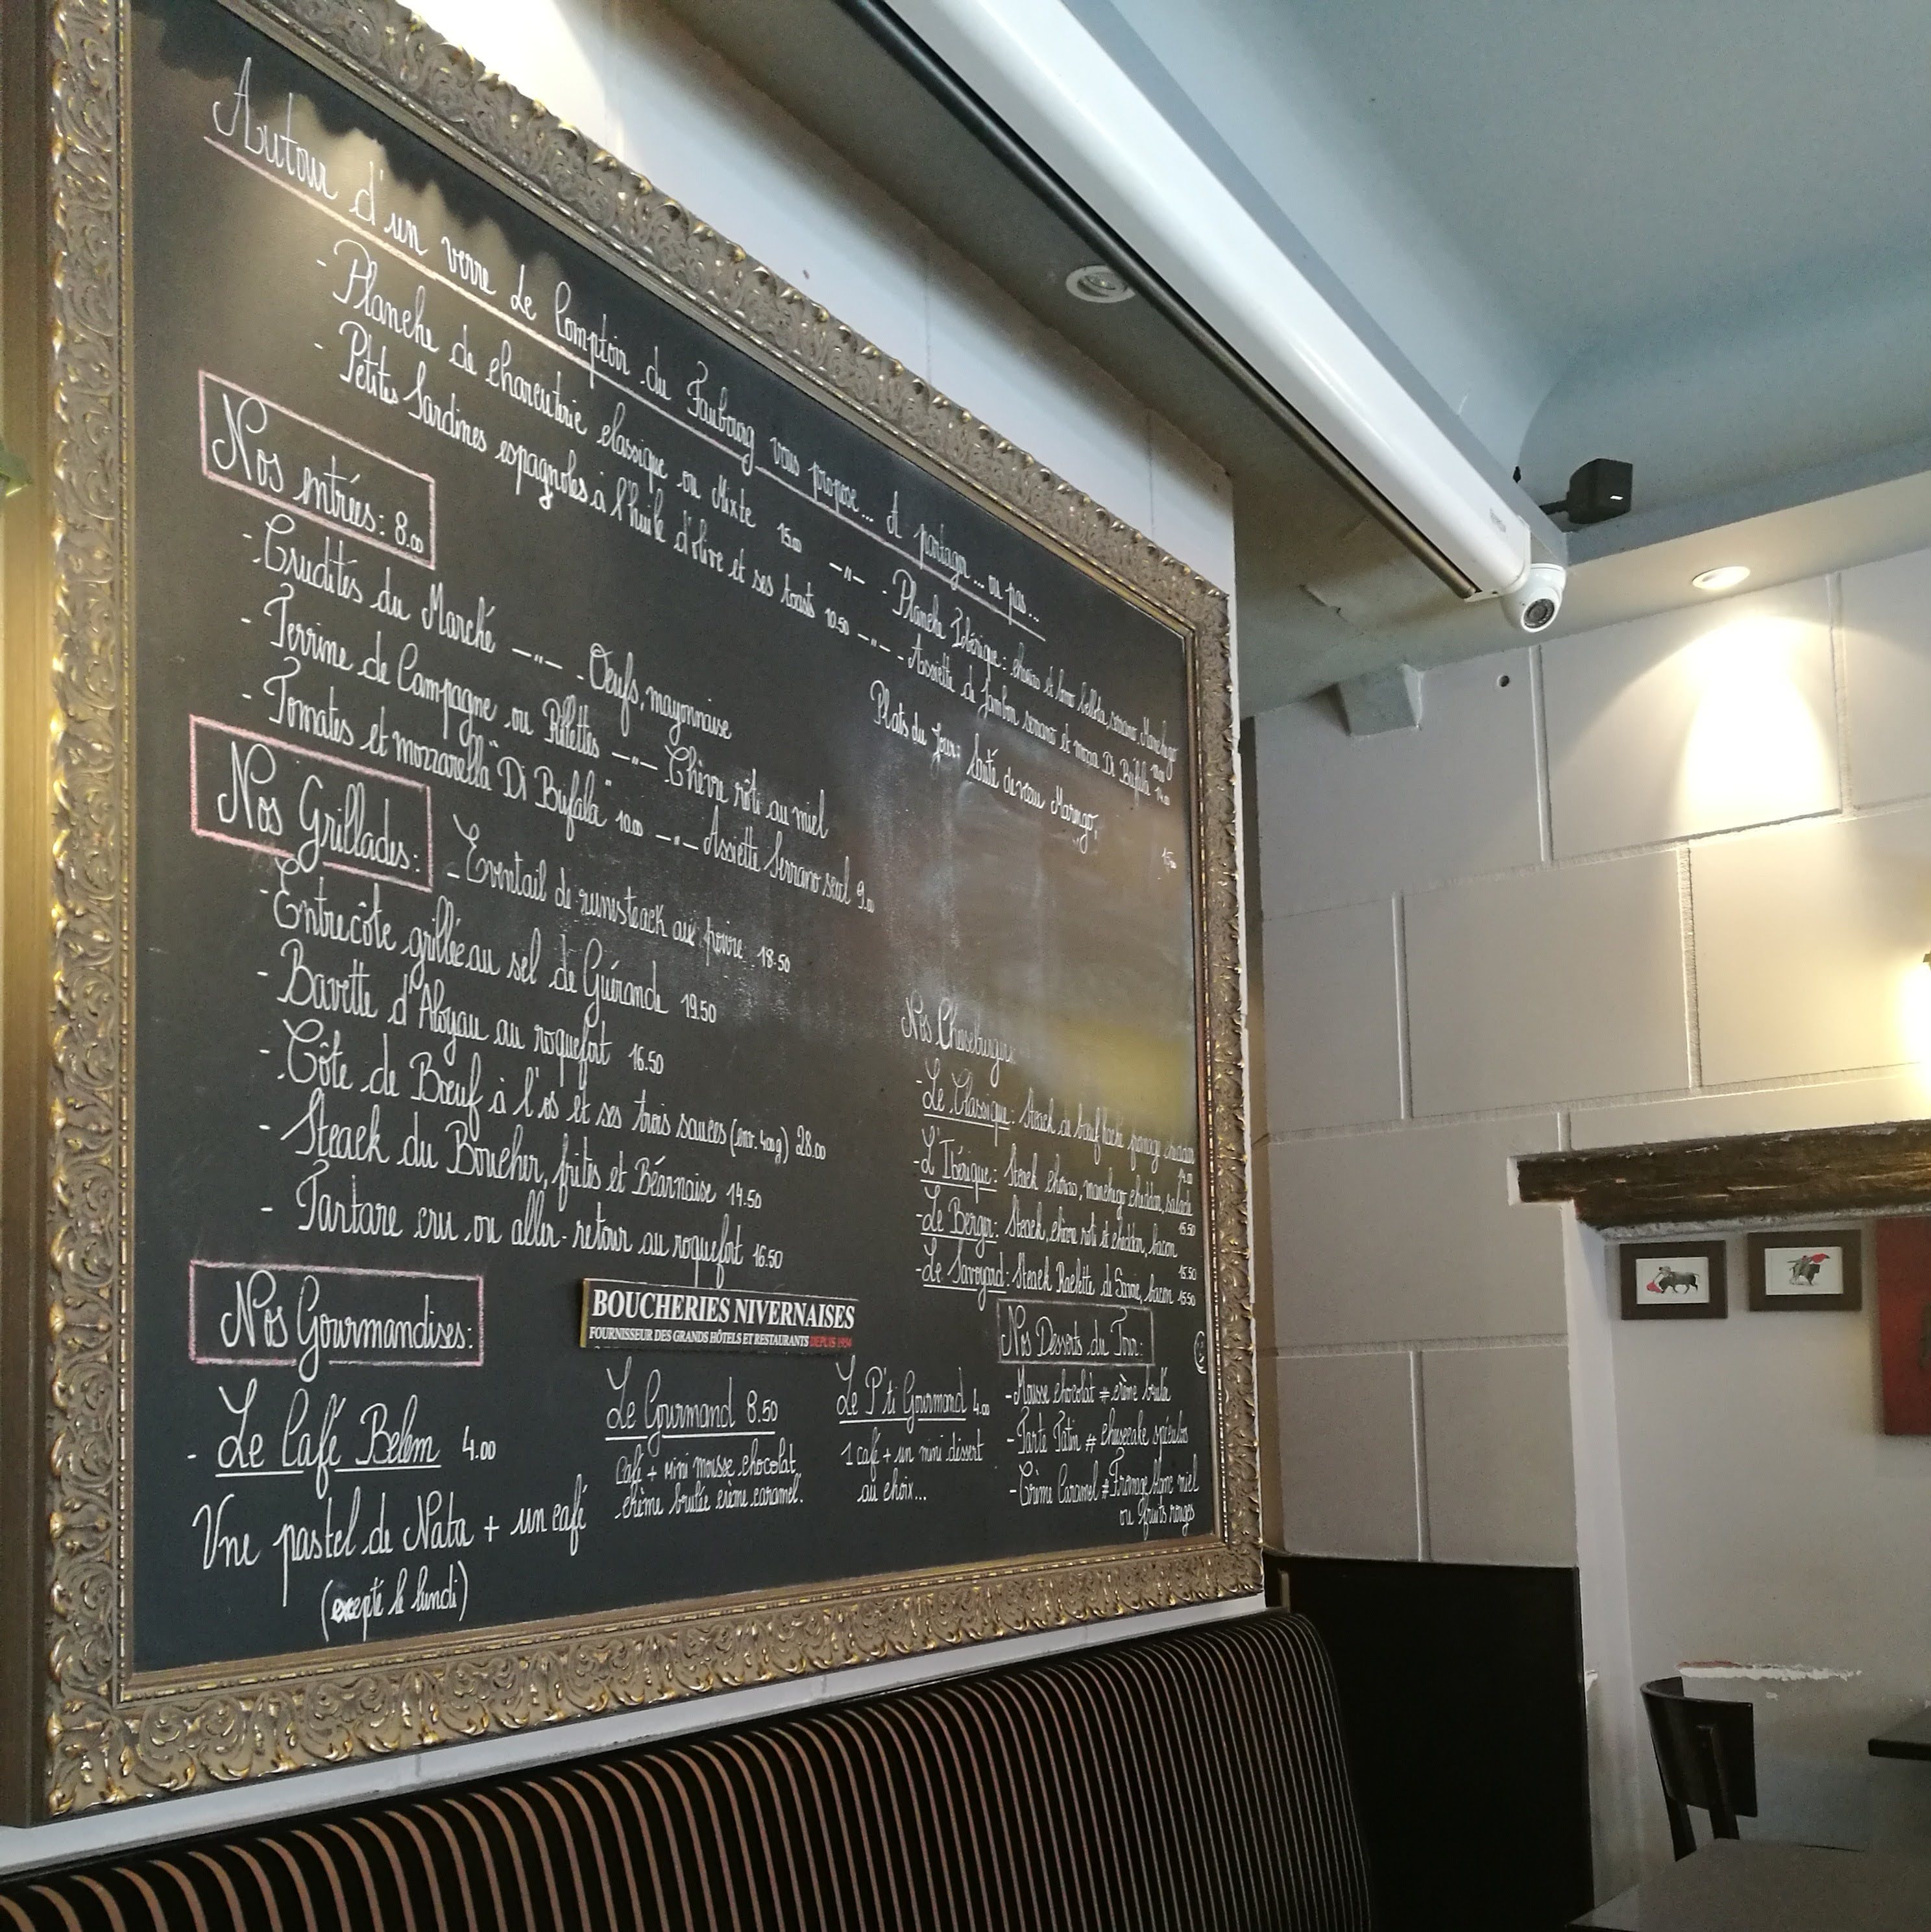 Autour d'un verre Le Comptoir du Faubourg vous propose... A partager... ou pas...
- Planche de charcuterie classique ou Mixte 15.00 —"— - Planche Ibérique: chorizo et lomo bellota, serrano, Manchego
- Petites Sardines espagnoles à l'huile d'olive et ses toasts 10.50 —"— - Assiette de Jambon serrano et mozza Di Bufala
Nos entrées: 8.00
- Crudités du Marché —"— - Oeufs, mayonnaise
- Terrine de Campagne ou Rillettes —"— Chèvre rôti au miel
- Tomates et mozzarella "Di Bufala" 10.00 —"— Assiette Serrano seul 9.00
Plats du Jour: Sauté de veau Marengo,
Nos Grillades:
- Eventail de rumsteack aux poivre 18.50
- Entrecôte grillée au sel de Guérande 19.50
- Bavette d'Aloyau au roquefort 16.50
- Côte de Boeuf à l'os et ses trois sauces (env. 400g) 28.00
- Steack du Boucher, frites et Béarnaise 14.50
- Tartare cru ou aller-retour au roquefort 16.50
Nos Cheeseburgers
- Le Classique: Steack de boeuf haché fromage
- L'Ibérique: Steack chorizo, manchego cheddar, salade
15.50
- Le Berger: Steack, chèvre roti et cheddar, bacon
15.50
- Le Savoyard: Steack Raclette de Savoie, bacon 15.50
BOUCHERIES NIVERNAISES
FOURNISSEUR DES GRANDS HÔTELS ET RESTAURANTS DEPUIS 1954
Nos Gourmandises:
- Le Café Belem 4.00
Une pastel de Nata + un café
(excepté le lundi)
Le Gourmand 8.50
Café + mini mousse chocolat
crème brulée crème caramel.
Le P'ti Gourmand 4.00
1 café + un mini dessert
au choix...
Nos Desserts du Jour:
- Mousse chocolat # crème brulée
- Tarte Tatin # cheesecake spéculos
- Crème Caramel # Fromage blanc miel
ou fruits rouges